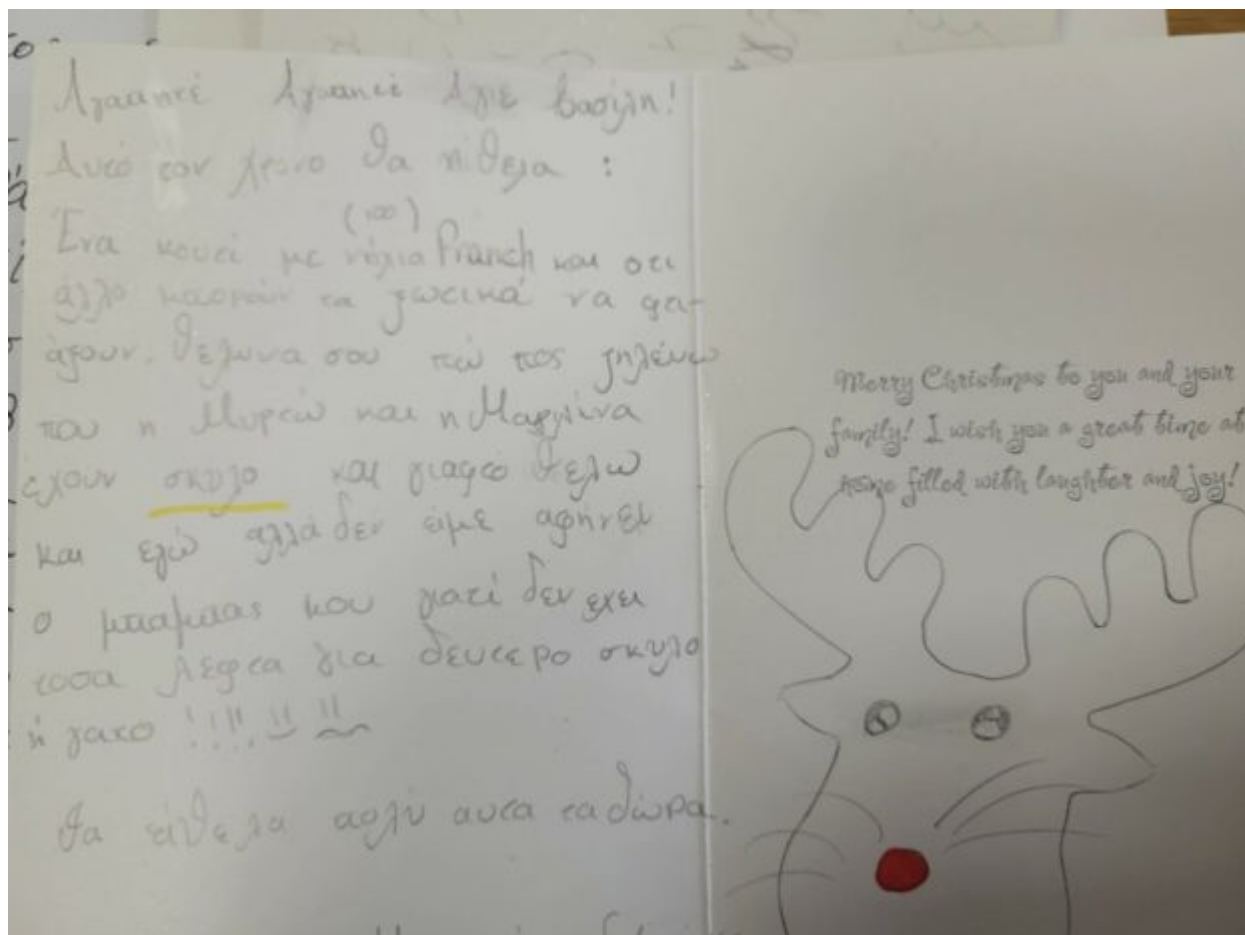 Αγαπητέ Αγαπητέ Άγιε Βασίλη!
Αυτό τον χρόνο θα ήθελα :
(100)
Ένα κουτί με νύχια Franch και οτι
άλλο μπορούν τα ξωτικά να φτι-
άξουν. Θέλω να σου πώ πως ζηλεύω
που η Μυρτώ και η Μαριλίνα
έχουν σκυλο και γιαφτό θελω
και εγώ αλλά δεν είμε αφήνει
ο μπαμπας μου γιατί δεν εχει
τοσα λεφτα για δευτερο σκυλο
ή γατο !!!! !! !!
Θα είθελα πολύ αυτα τα δώρα.
Merry Christmas to you and your
family! I wish you a great time at
home filled with laughter and joy!